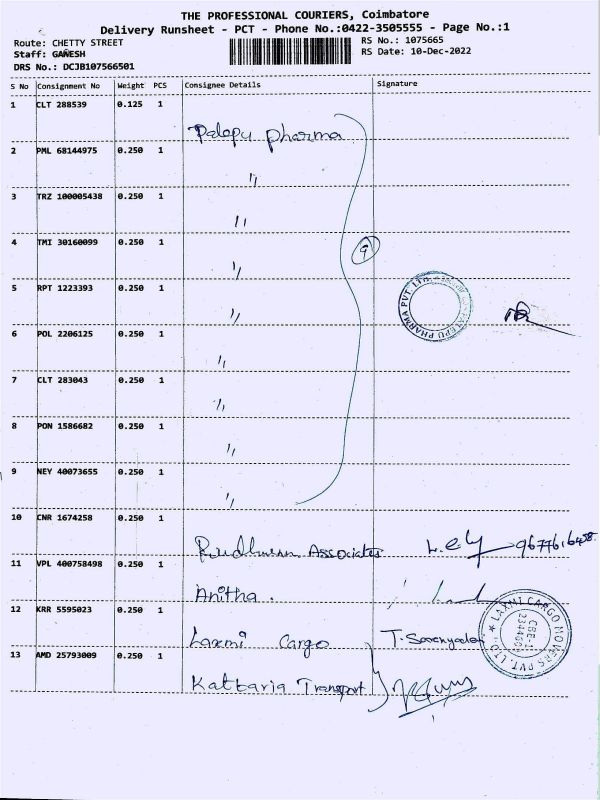 THE PROFESSIONAL COURIERS, Coimbatore
Delivery Runsheet - PCT - Phone No.:0422-3505555 - Page No.:1
Route: CHETTY STREET
RS No.: 1075665
Staff: GANESH
RS Date: 10-Dec-2022
DRS No.: DCJB107566501
S No Consignment No Weight PCS Consignee Details Signature
1 CLT 288539 0.125 1 Palepu Pharma
2 PML 68144975 0.250 1 "
3 TRZ 100005438 0.250 1 "
4 TMI 30160099 0.250 1 "
9
5 RPT 1223393 0.250 1 "
PALEPU PHARMA PVT. LTD.
6 POL 2206125 0.250 1 "
7 CLT 283043 0.250 1 "
8 PON 1586682 0.250 1 "
9 NEY 40073655 0.250 1 "
10 CNR 1674258 0.250 1 Associates
11 VPL 400758498 0.250 1 Anitha.
12 KRR 5595023 0.250 1 Laxmi Cargo
LAXMI CARGO MOVERS PVT. LTD.
CBE-1
13 AMD 25793009 0.250 1 Kattaria Transport